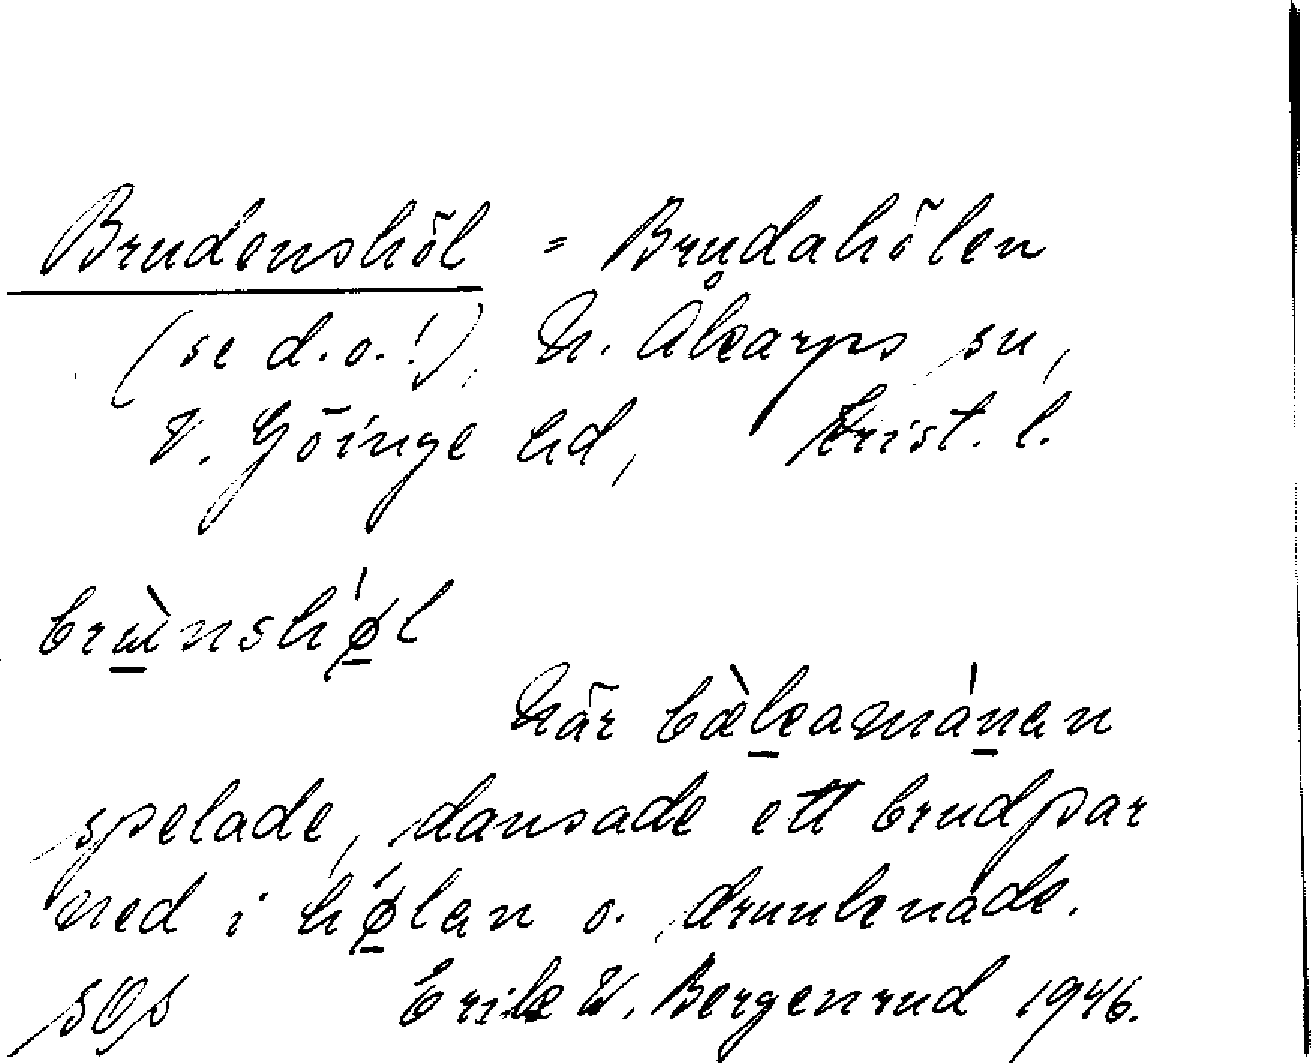 Brudenshöl = Brudahölen
(se d.o.!), N. Åkarps sn,
V. Göinge hd, Krist. l.
brùnshǿl
När bæ̀kamánen
spelade, dansade ett brudpar
ned i hǿlan o. drunknade.
Erik W. Bergenrud 1946.